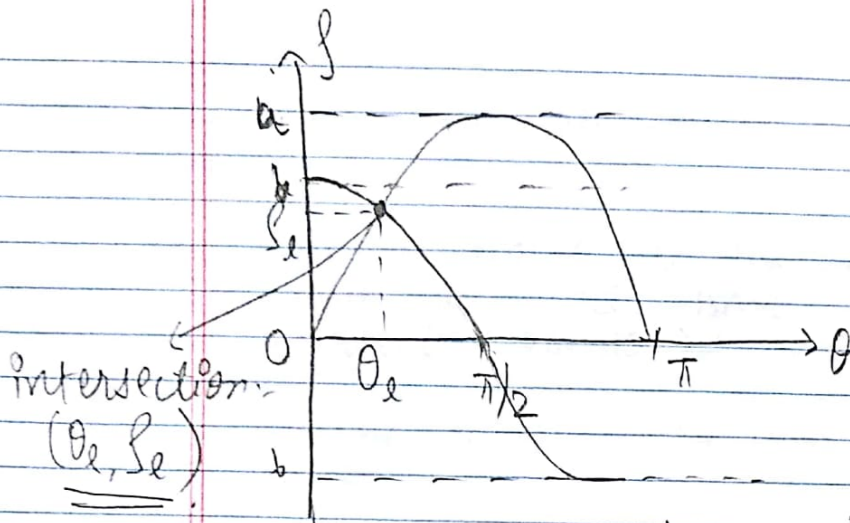 ρ
a
b
ρₑ
0
θₑ
π/2
π
θ
b
intersection
(θₑ, ρₑ)